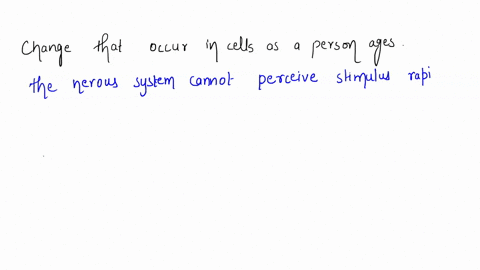 Change that occur in cells as a person ages.
the nerous system cannot perceive stimulus rapi